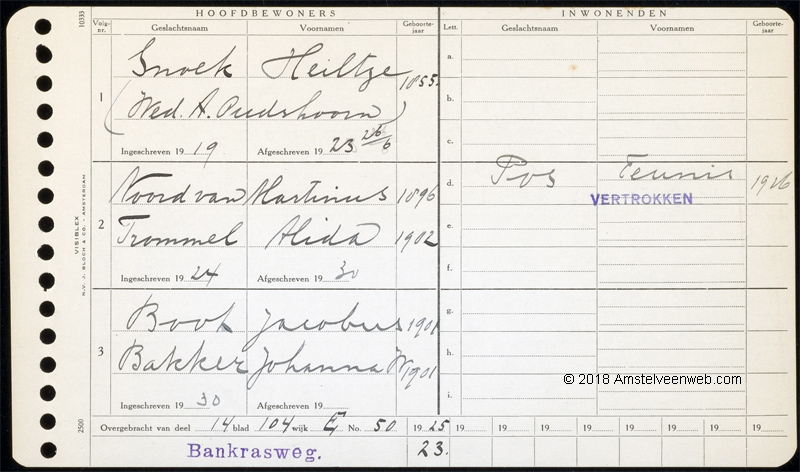 HOOFDBEWONERS
INWONENDEN
10333
Volg-nr.
Geslachtsnaam
Voornamen
Geboorte-jaar
Lett.
Geslachtsnaam
Voornamen
Geboorte-jaar
1
Snoek Heiltge 1855.
(Wed. A. Piedshoorn)
Ingeschreven 19 19
Afgeschreven 19 23 26/6
2
Noord van Martinus 1896
Trommel Alida 1902
Ingeschreven 19 24
Afgeschreven 19 30
3
Boot Jacobus 1901
Bakker Johanna W 1901
Ingeschreven 19 30
Afgeschreven 19
a.
b.
c.
d. Pos Teunis 1926
VERTROKKEN
e.
f.
g.
h.
i.
© 2018 Amstelveenweb.com
VISIBLEX
N.V. J. BLOCH & CO. - AMSTERDAM
2500
Overgebracht van deel 14 blad 104 wijk E No. 50 19 25 19 19 19 19 19 19 19 19
Bankrasweg. 23.